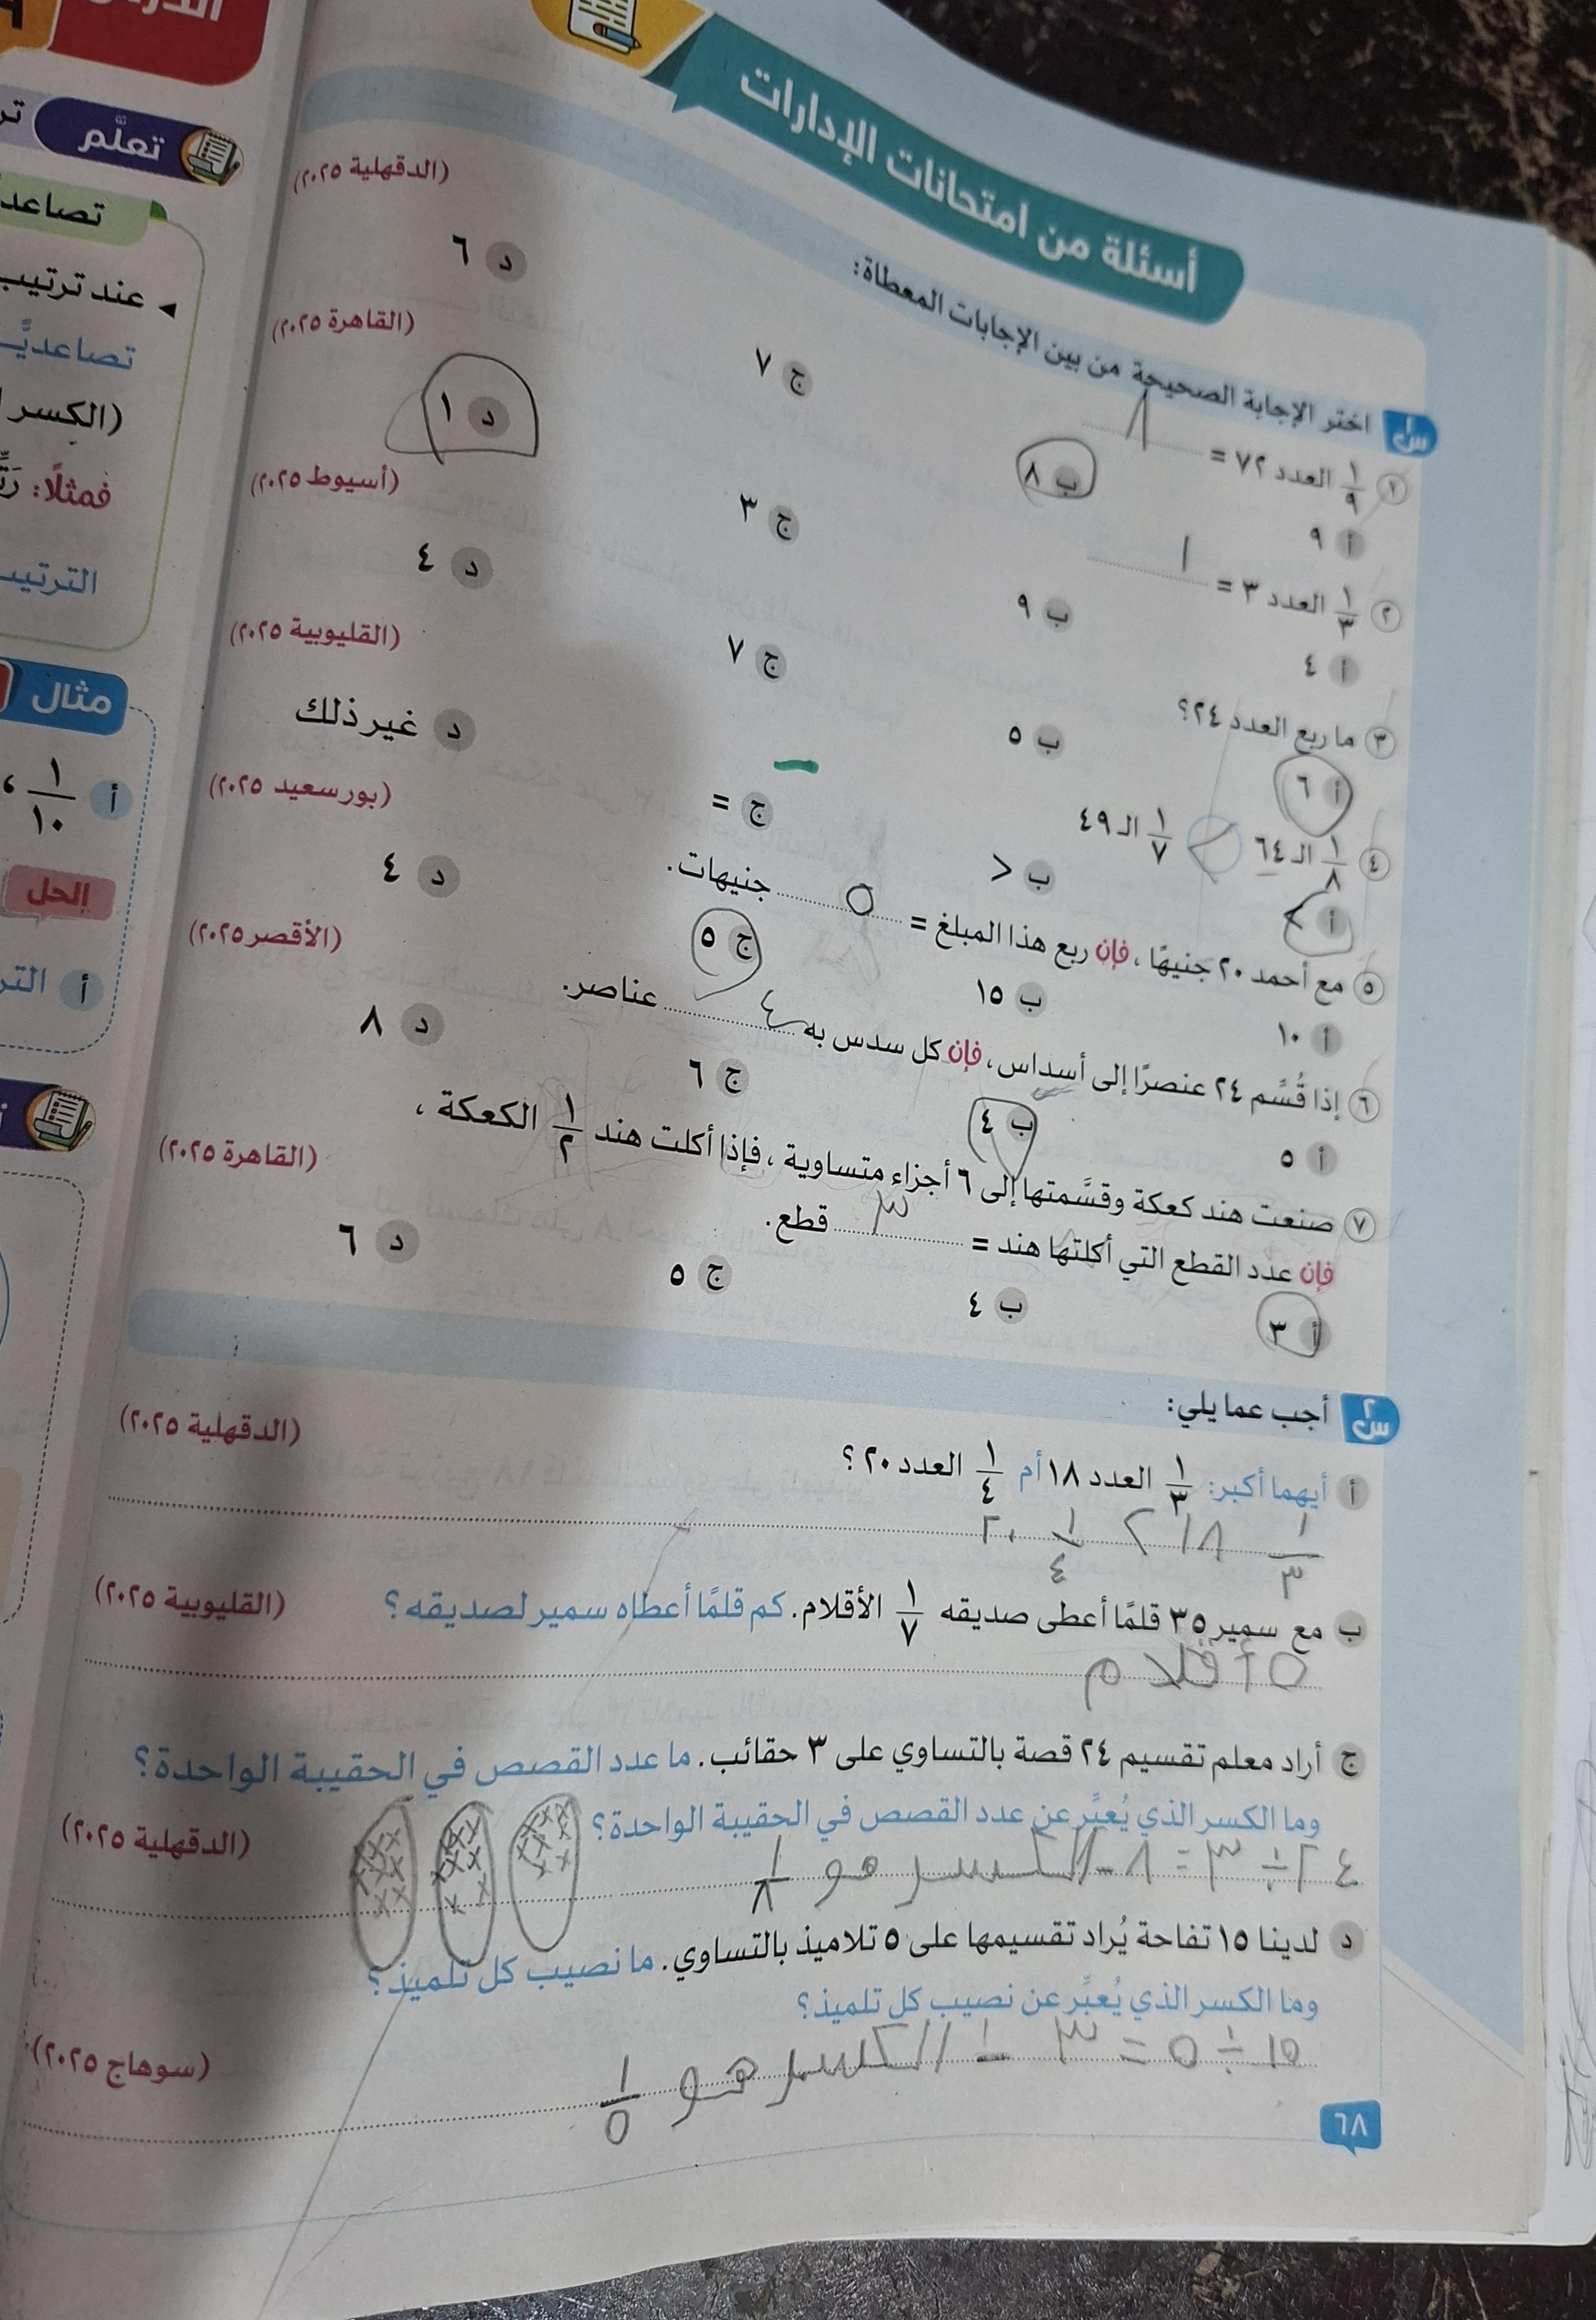 أسئلة من امتحانات الإدارات
س١ اختر الإجابة الصحيحة من بين الإجابات المعطاة:
١ ١/٩ العدد ٧٢ = ٨ (الدقهلية ٢٠٢٥)
أ ٩ ب ٨ ج ٧ د ٦
٢ ١/٣ العدد ٣ = ١ (القاهرة ٢٠٢٥)
أ ٤ ب ٩ ج ٣ د ١
٣ ما ربع العدد ٢٤؟ (أسيوط ٢٠٢٥)
أ ٦ ب ٥ ج ٧ د ٤
٤ ١/٨ الـ ٦٤ > ١/٧ الـ ٤٩ (القليوبية ٢٠٢٥)
أ > ب < ج = د غير ذلك
٥ مع أحمد ٢٠ جنيهًا، فإن ربع هذا المبلغ = ٥ جنيهات. (بورسعيد ٢٠٢٥)
أ ١٠ ب ١٥ ج ٥ د ٤
٦ إذا قُسِّم ٢٤ عنصرًا إلى أسداس، فإن كل سدس به ٤ عناصر. (الأقصر ٢٠٢٥)
أ ٥ ب ٤ ج ٦ د ٨
٧ صنعت هند كعكة وقسَّمتها إلى ٦ أجزاء متساوية، فإذا أكلت هند ١/٢ الكعكة،
فإن عدد القطع التي أكلتها هند = ٣ قطع. (القاهرة ٢٠٢٥)
أ ٣ ب ٤ ج ٥ د ٦
س٢ أجب عما يلي:
أ أيهما أكبر: ١/٣ العدد ١٨ أم ١/٤ العدد ٢٠؟ (الدقهلية ٢٠٢٥)
١/٣ ١٨ > ١/٤ ٢٠
ب مع سمير ٣٥ قلمًا أعطى صديقه ١/٧ الأقلام. كم قلمًا أعطاه سمير لصديقه؟ (القليوبية ٢٠٢٥)
٥ أقلام
ج أراد معلم تقسيم ٢٤ قصة بالتساوي على ٣ حقائب. ما عدد القصص في الحقيبة الواحدة؟
وما الكسر الذي يُعبِّر عن عدد القصص في الحقيبة الواحدة؟ (الدقهلية ٢٠٢٥)
٢٤ ÷ ٣ = ٨ - الكسر هو ١/٨
د لدينا ١٥ تفاحة يُراد تقسيمها على ٥ تلاميذ بالتساوي. ما نصيب كل تلميذ؟
وما الكسر الذي يُعبِّر عن نصيب كل تلميذ؟ (سوهاج ٢٠٢٥)
١٥ ÷ ٥ = ٣ - الكسر هو ١/٥
٦٨
تعلَّم
عند ترتيب
تصاعديًّا
فمثلًا:
مثال
أ ١/١٠ ،
الحل
أ